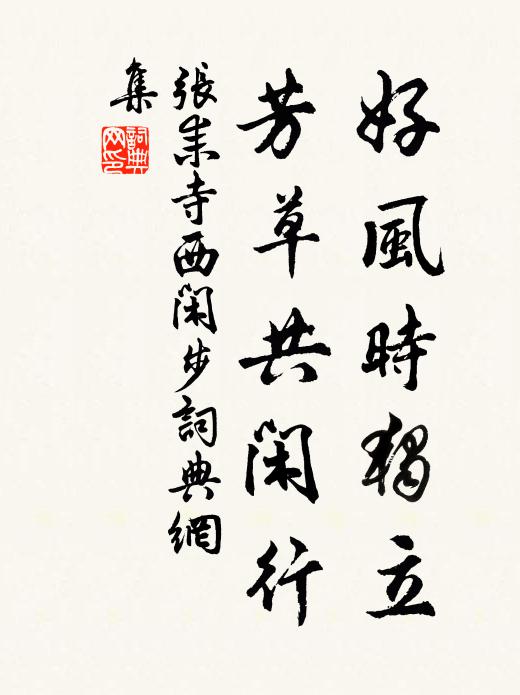 好風時獨立
芳草共閑行
張耒寺西閑步詞典網
集
詞典
网印